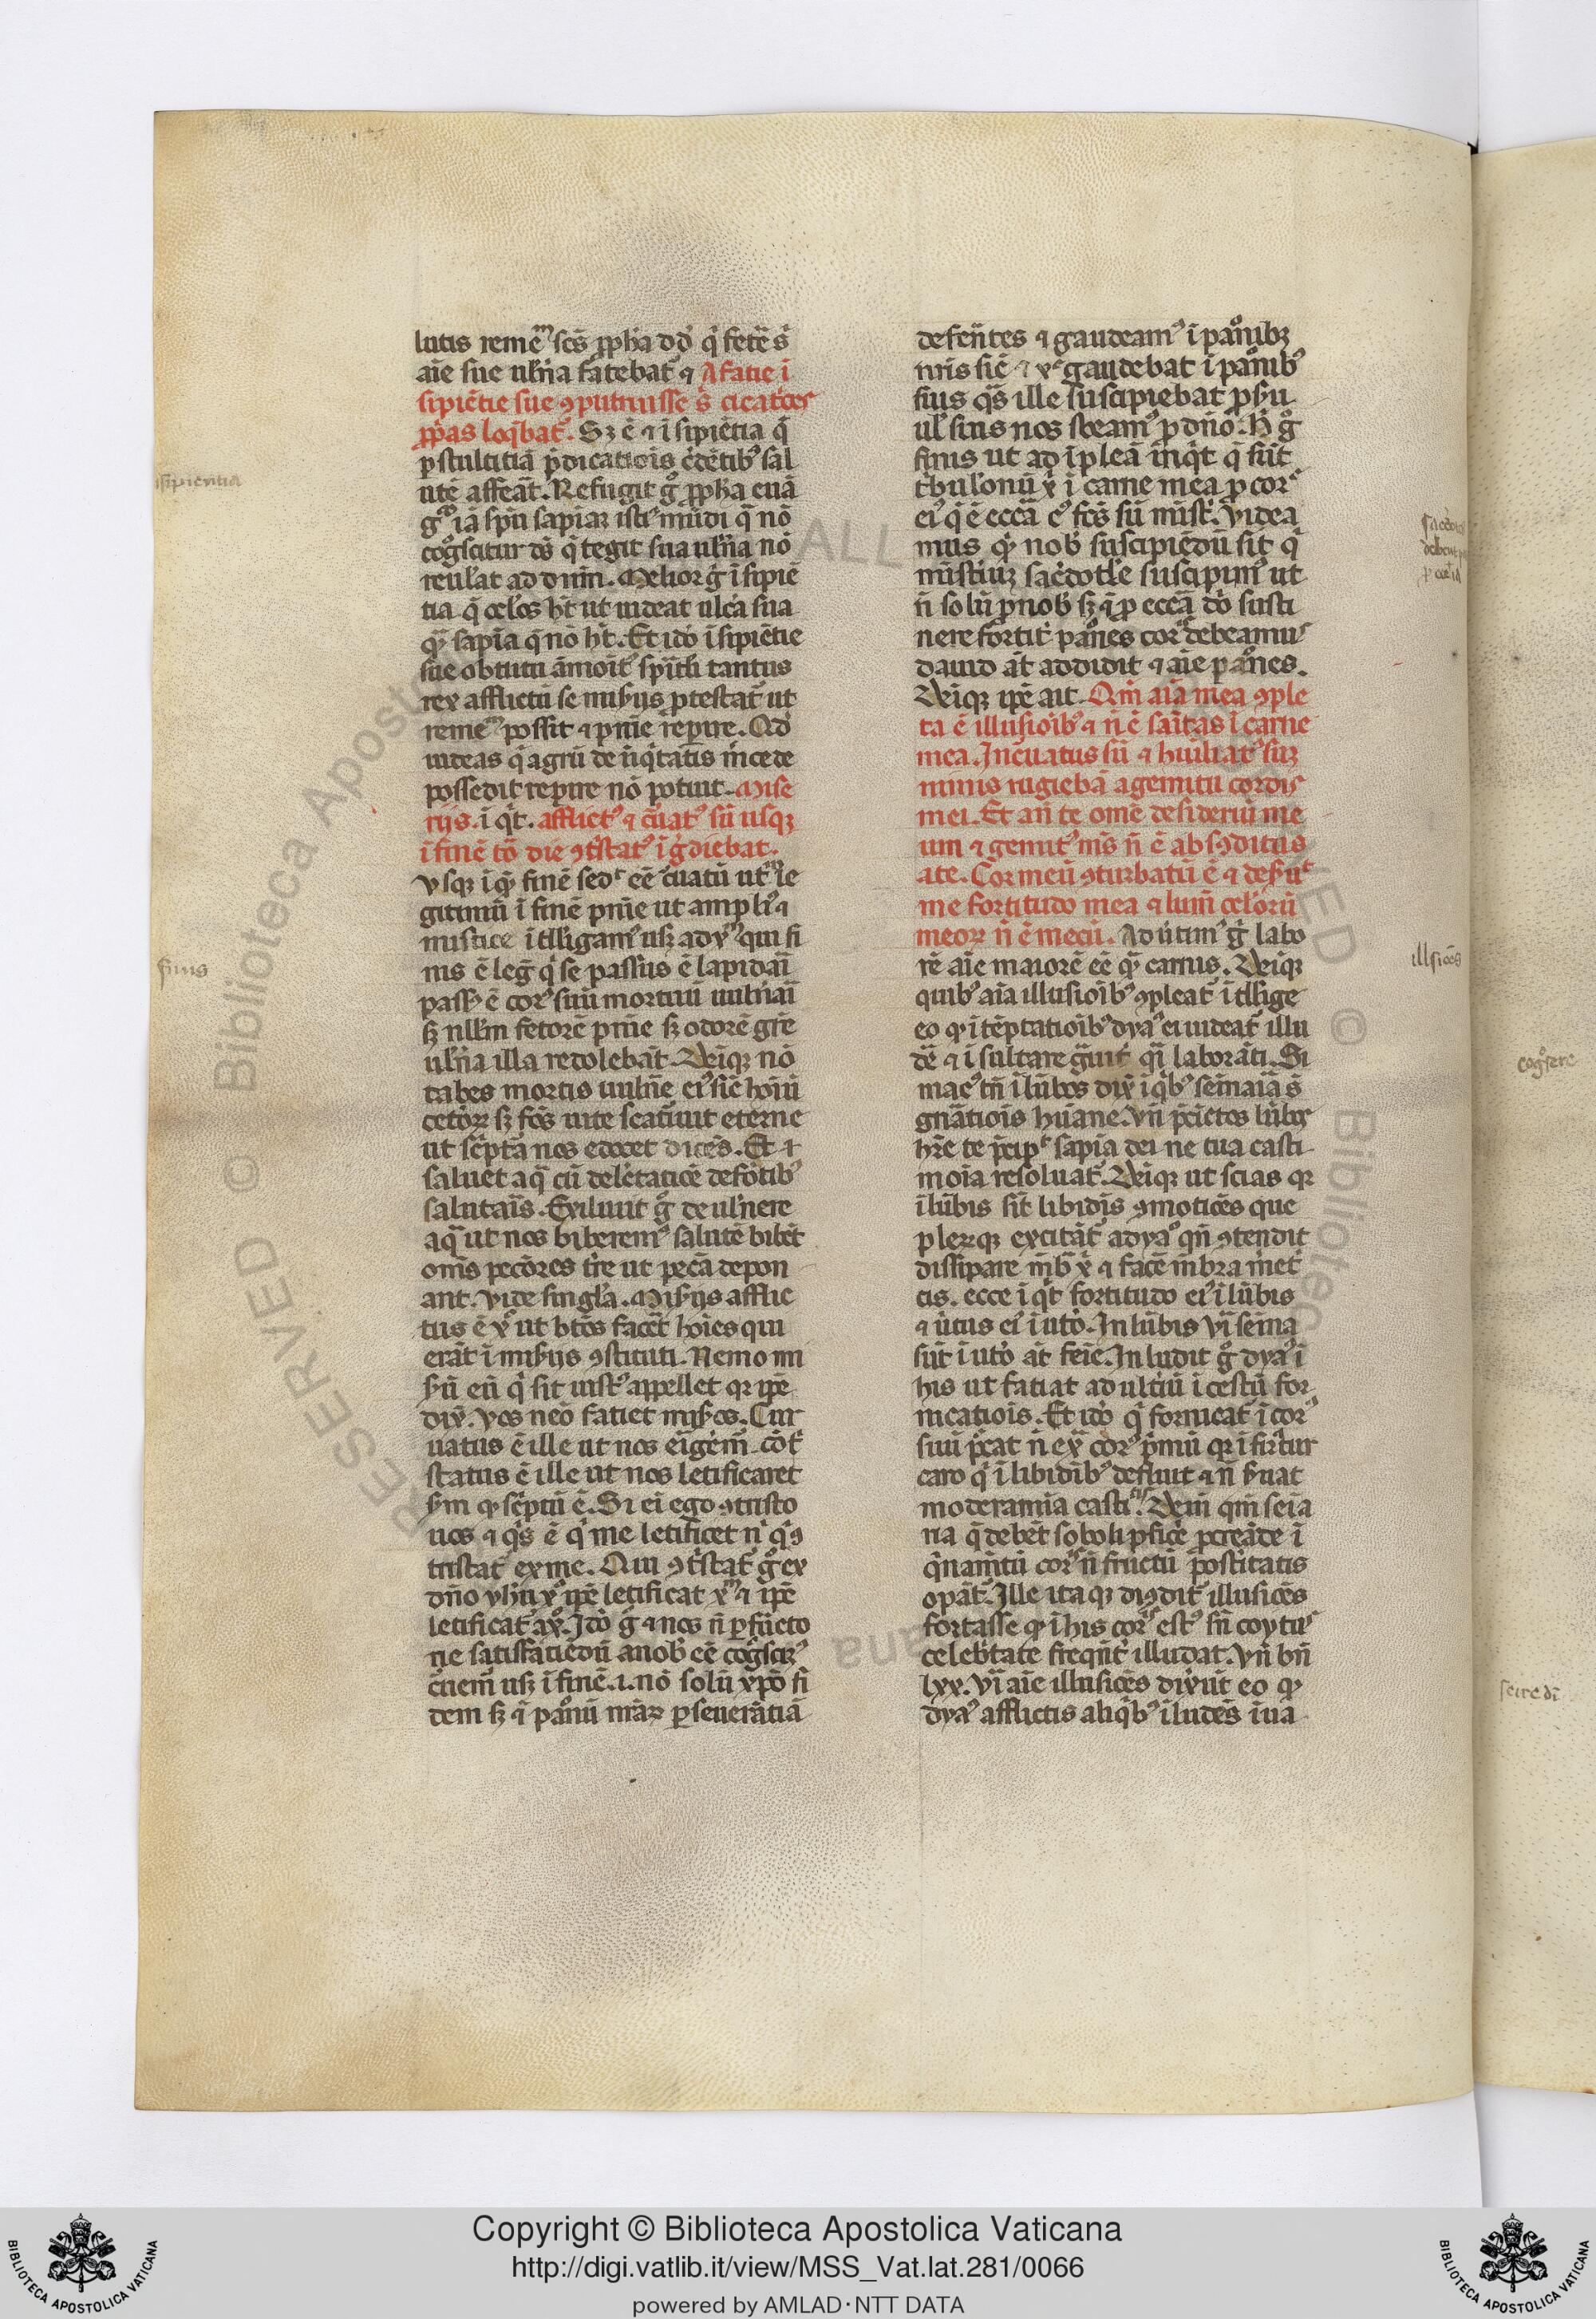 lutis remē sc̄s ꝓph̄a dd̄ q̇ fetē s̄
aīe sue uln̄a fatebat᷑ ⁊ A fatie ī
sipiētie sue ꝯputruisse s̄ cicatͥces
ꝓp̄as loq̄bat᷑. Sꝫ ē ⁊ īsipiētia q̄
ꝑ stultitiā p̄dicatiōis c̄dētibꝰ sal
utē affeāt. Refugit gͦ ꝓph̄a euā
iā sp̄u sapīaꝫ istiꝰ mūdi q̄ nō
cogͦscitur ds̄ q̇ tegit sua uln̄a nō
reuel̄at ad dnm̄. Melior gͦ īsipiē
tia q̄ cel̄os hꝫ ut uideat ulc̄a sua
qͣꝫ sapīa q̄ nō hꝫ. Et idō īsipiētie
sue obtutu āmoītꝰ sp̄itlī tantus
rex afflictū se mis̄ijs ꝓtestat᷑ ut
remē possit ⁊ pn̄ie rep̄ire. Qd̄
iudeas q̇ agrū de īiqͥtatis m̄cede
possedit reꝑire nō potuit. Mise
rijs. īqͥt. afflictꝰ ⁊ c̄uatꝰ sū usqꝫ
ī finē tō die ꝯtͥstatꝰ īgͥdiebat᷑.
Vsqꝫ ī finē eē c̄uatū ut le
gitimū ī finē pn̄ie ut ampliꝰ ⁊
mistice ītll̄igamꝰ usqꝫ ad xꝰ qui fi
nis ē leḡ q̇ se passus ē lapidāī
passꝰ ē corꝰ suū mortuū uuln̄aī
sꝫ null̄m fetorē pn̄ie sꝫ odorē gr̄e
uln̄a illa redolebāt. Deīqꝫ nō
tabes mortis uuln̄e eiꝰ sic̄ hoīū
cet̄oꝝ sꝫ fōs uite scatuuit eterne
ut sc̄ptͣa nos edocet dicēs. Et ⁊
saluet aqͣ cū delc̄tatiōe de fōtibꝰ
salutaīs. Exiluit gͦ de uln̄ere
aqͣ ut nos biberemꝰ salutē bibēt
om̄s pecc̄ores tr̄e ut pecc̄ā depon
ant. Vide singl̄a. Mis̄ijs afflic
tus ē xꝰ ut bt̄os fac̄et hoīes qui
erāt ī mis̄ijs ꝯstituti. Nemo ni
sū eū q̇ sit iustꝰ appellet qꝛ ip̄e
dix̄. Vos neō fatiet mis̄os. Cur
uatus ē ille ut nos eͥig̃em̄ cōtͥ
status ē ille ut nos letificaret
sm̄ qꝫ sc̄ptū ē. Si ei ego ꝯtͥsto
uos ⁊ qͥs ē q̇ me letificet nͥ qͥ ꝯ
tristat᷑ ex me. Qui ꝯtͥstat᷑ gͦ ex
dn̄o letificat ⁊ ip̄e
letificat᷑ a xͦ. Idō gͦ ⁊ nos n̄ ꝑfūcto
ne satisfatiēdū anobͥ eē cogͦscīꝰ
c̄uem̄ usqꝫ ī finē .ı. nō solū xpō fi
dem sꝫ ⁊ ī paꝰonū nr̄aꝝ ꝑseuerātiā
defēn̄tes ⁊ gaudeamꝰ ī paꝰonibꝫ
nr̄is sic̄ ⁊ xꝰ gaudebat ī paꝰonibꝰ
suis qͣs ille suscipiebat ꝓ
ul̄ suis nos sc̄eamꝰ ꝓ dn̄o. H̄ gͦ
finis ut ad īpleā īnqͥt q̄ sūt
tͥbul̄onū xͥ ī carne mea ꝓ corꝰ
eiꝰ q̄ ē ecc̄ā cꝰ fc̄s sū mīstͥ. Videa
mus qͥ nobͥ suscipiēdū sit q̇
mīstiuꝫ sac̄dotl̄e suscipimꝰ ut
n̄ solū ꝓ nobͥ sꝫ ⁊ ꝓ ecc̄ā dō susti
nere fortit᷑ paꝰones corꝰ debeamuꝰ
dauid at̄ addidit ⁊ aīe paꝰones.
Deīqꝫ ip̄e ait. Qm̄ aīa mea ꝯple
ta ē illusioībꝰ ⁊ n̄ ē saītas ī carne
mea. Inc̄uatus sū ⁊ huīliatꝰ sūꝫ
nimis rugiebā a gemitu cordis
mei. Et an̄ te om̄e desideriū me
um ⁊ gemitꝰ mꝰs n̄ ē absꝯditus
a te. Cor meū ꝯturbatū ē ⁊ des̄uit
me fortitudo mea ⁊ lum̄ ocl̄orū
meoꝝ n̄ ē mecū. Aduītimꝰ gͦ labo
rē aīe maiorē eē qͣꝫ carnis. Deīqꝫ
quibꝰ aīa illusioībꝰ ꝯpleat᷑ ītll̄ige
eo qꝫ ī tēptatioībꝰ dyaꝰ ei uideat᷑ illu
dē ⁊ īsultare gͣuit᷑ qͣī laborāti. Si
macꝰ tn̄ īlūbos dix̄ ī qͥbꝰ semīaīa s̄
gnāatiōis huāne. Vn̄ p̄cīctos lūbꝫ
hr̄e te p̄cip̄ sapīa dei ne tua casti
moīa resoluat᷑. Deīqꝫ ut scias qꝛ
ī lūbis sīt libidīs ꝯmotiōes que
pleꝝqꝫ excitāt᷑ a dyaꝰ qn̄ ꝯtendit
dissipare mb̄ xͥ ⁊ facē mb̄ra mͤet
cis. ecce īqͥt fortitudo eiꝰ ī lūbis
⁊ uͥtus eiꝰ ī utō. In lūbis uͥ semīa
sūt ī utō at̄ feīe. In ludit gͦ dyaꝰ ī
his ut fatiat adultiū ī cestū for
nicatiōis. Et idō q̇ fornicat᷑ ī corꝰ
suū pͤcat n̄ exͣ corꝰ p̄mū qꝛ īfirͥtur
caro q̇ ī libidībꝰ defluit ⁊ n̄ s̄uat
moderamīa casti. Deīn qm̄ seīa
na q̄ debēt soboli ꝓficē ꝓcreāde ī
q̇namtū corꝰ n̄ fructū posteritatis
opāt᷑. Ille itaqꝫ diꝯdit᷑ illusiōes
fortasse qꝫ ī his corꝰ estꝰ sn̄ coytuꝰ
celebͥtate freqn̄t᷑ illudat. Vn̄ bn̄
lxx. uͥ aīe illusiōes dixūt eo qꝫ
dyaꝰ afflictis aliqͥbꝰ īludēs īua
isipientia
finis
illusiōes
cogͦscere
Copyright © Biblioteca Apostolica Vaticana
http://digi.vatlib.it/view/MSS_Vat.lat.281/0066
powered by AMLAD·NTT DATA
BIBLIOTECA APOSTOLICA VATICANA
BIBLIOTECA APOSTOLICA VATICANA